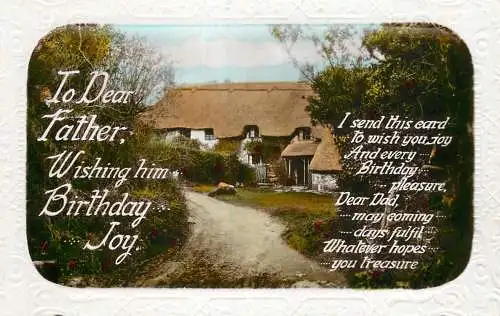 To Dear
Father,
Wishing him
Birthday
Joy.
I send this card
To wish you joy
And every
Birthday
pleasure,
Dear Dad,
may coming
days fulfil
Whatever hopes
you treasure